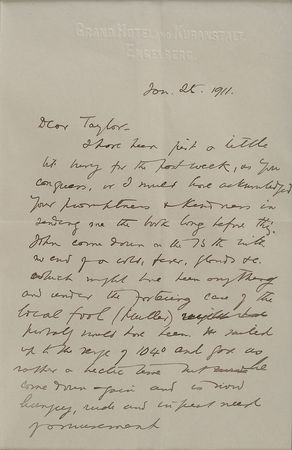 GRAND HOTEL AND KURANSTALT.
ENGELBERG.
Jan. 25. 1911.
Dear Taylor-
I have been just a little
bit busy for the past week, as you
may guess, or I would have acknowledged
your promptness & kindness in
sending me the book long before this.
John came down on the 15th with
no end of a cold, fever, glands &c.
which might have been anything
and under the fostering care of the
local fool
would have been. He sailed
up to the verge of 104° and gave us
rather a hectic time but
come down again and is now
hungry, rude and in great need
of amusement